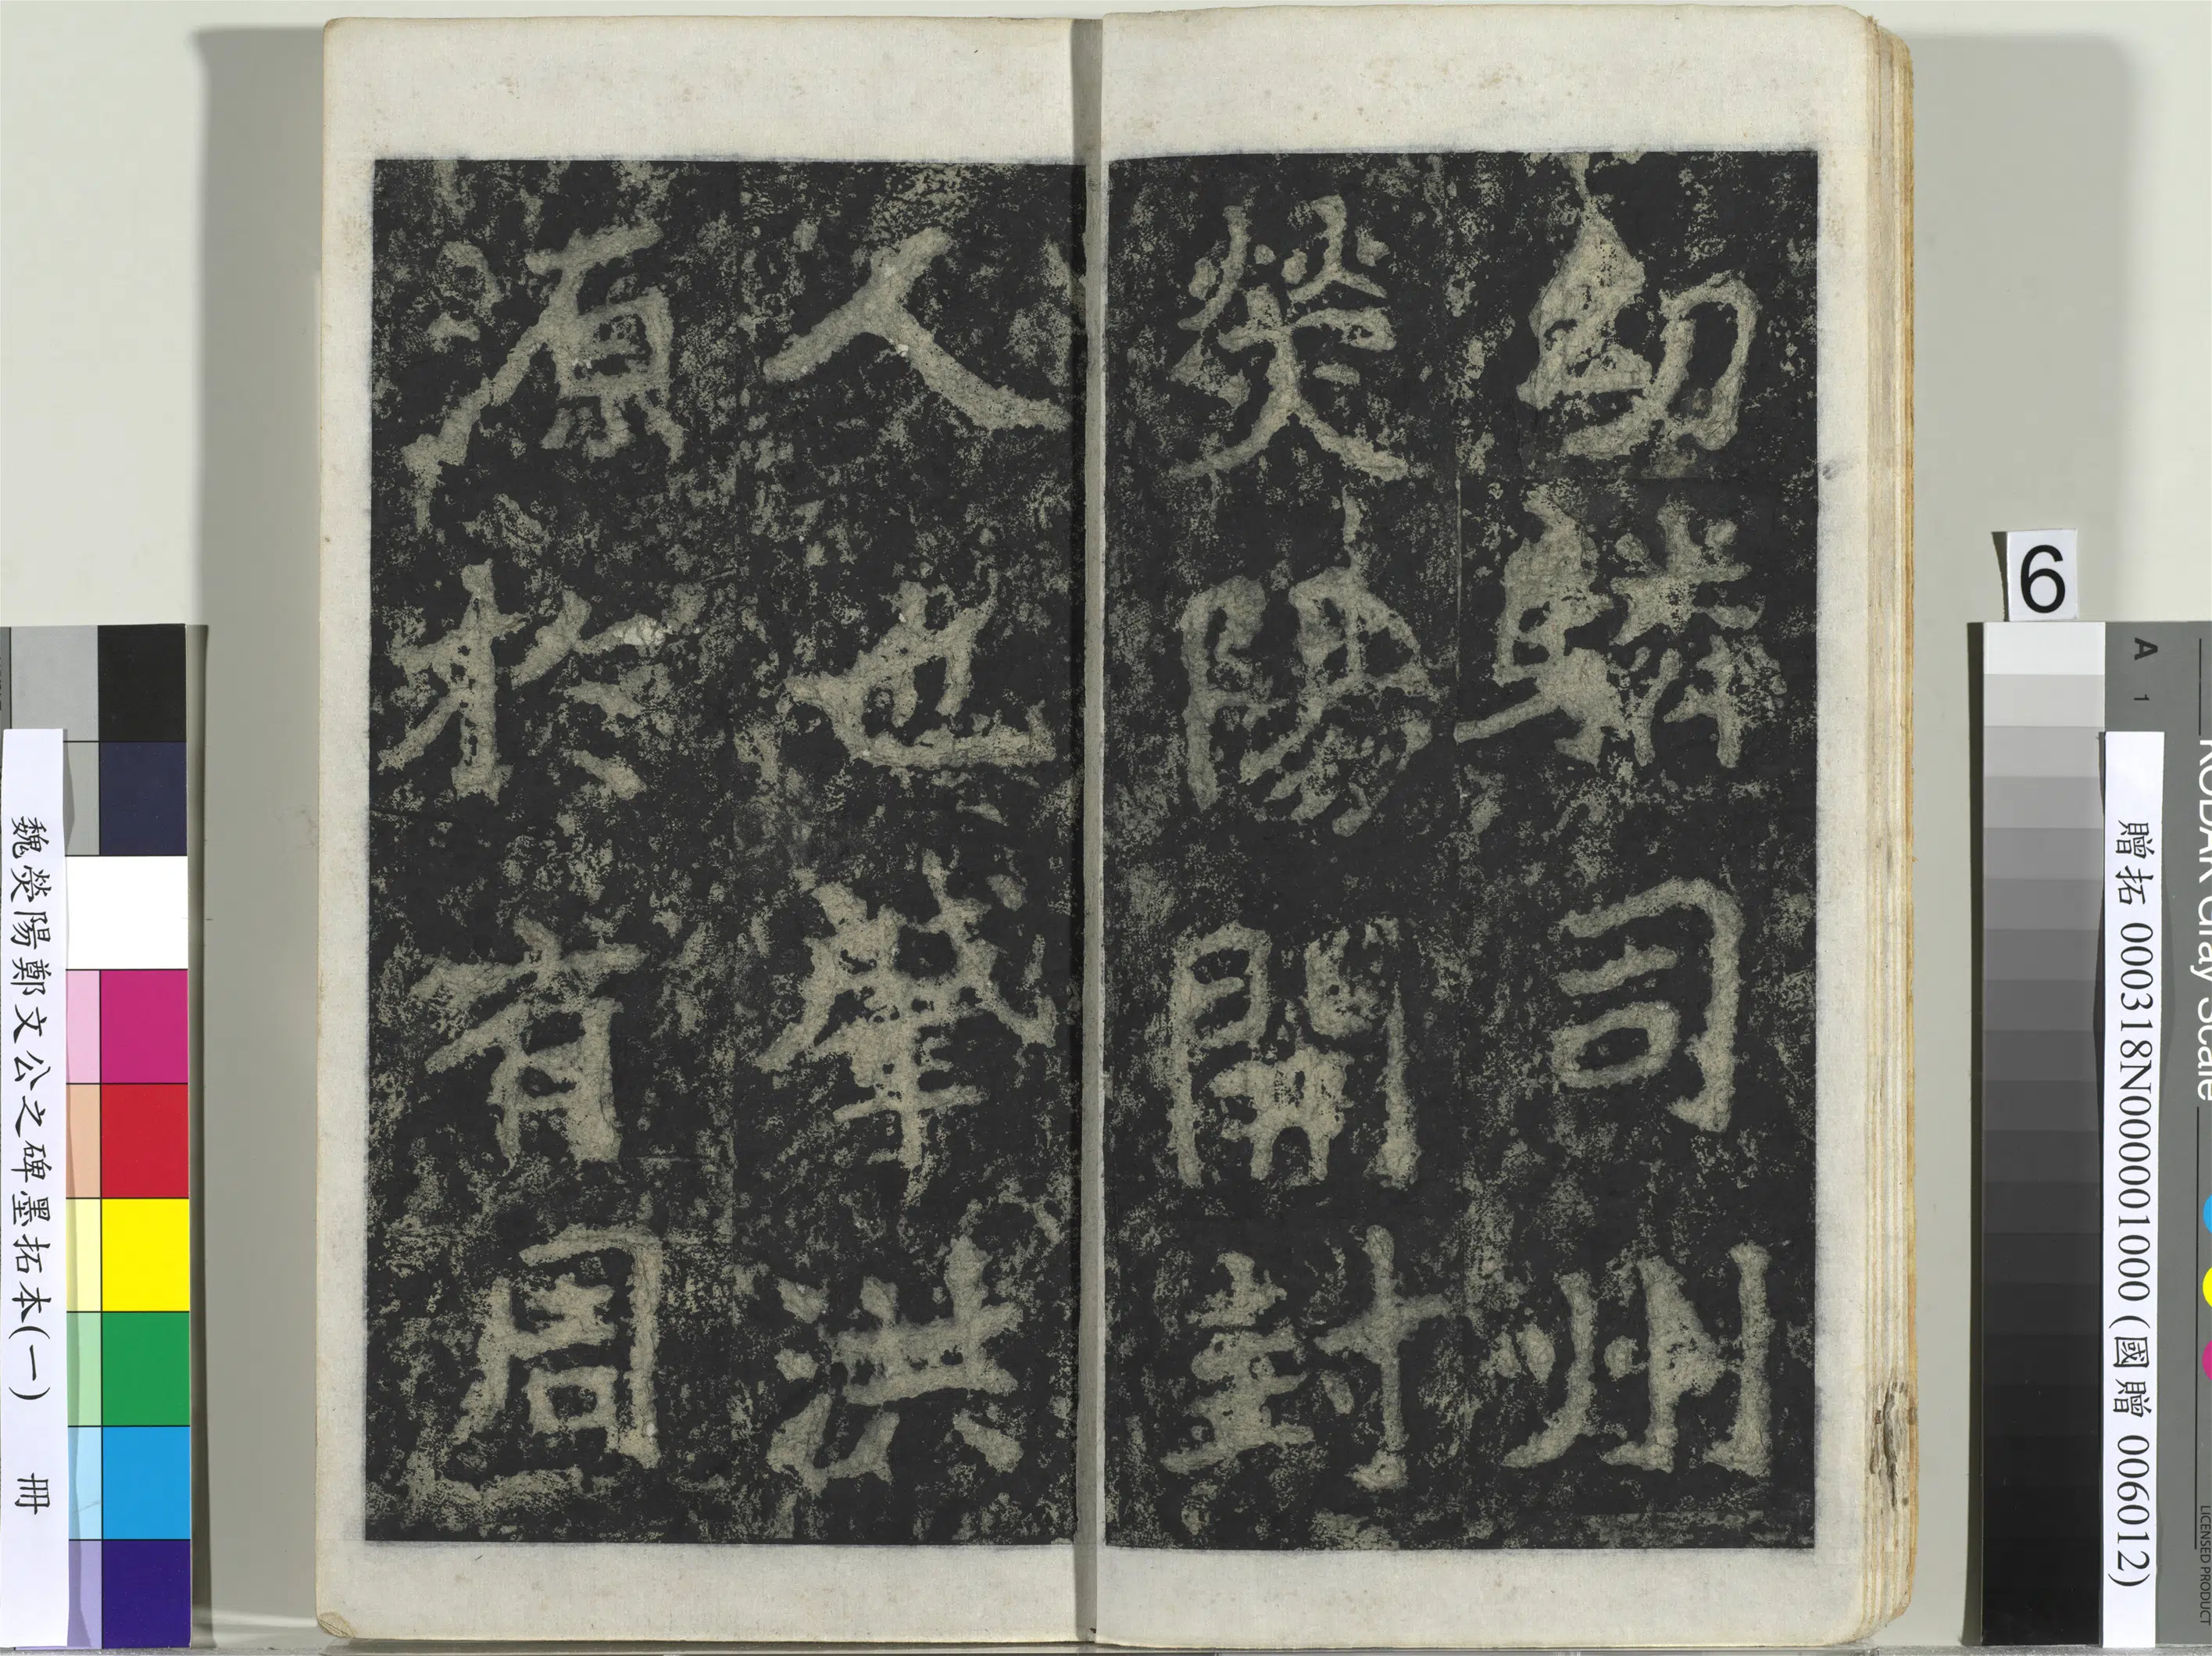 幼驎司州
熒陽開封
人也肇洪
源於有周
6
A 1
KODAK Gray Scale
LICENSED PRODUCT
贈拓 000318N000001000 (國贈 006012)
魏熒陽鄭文公之碑墨拓本(一) 冊